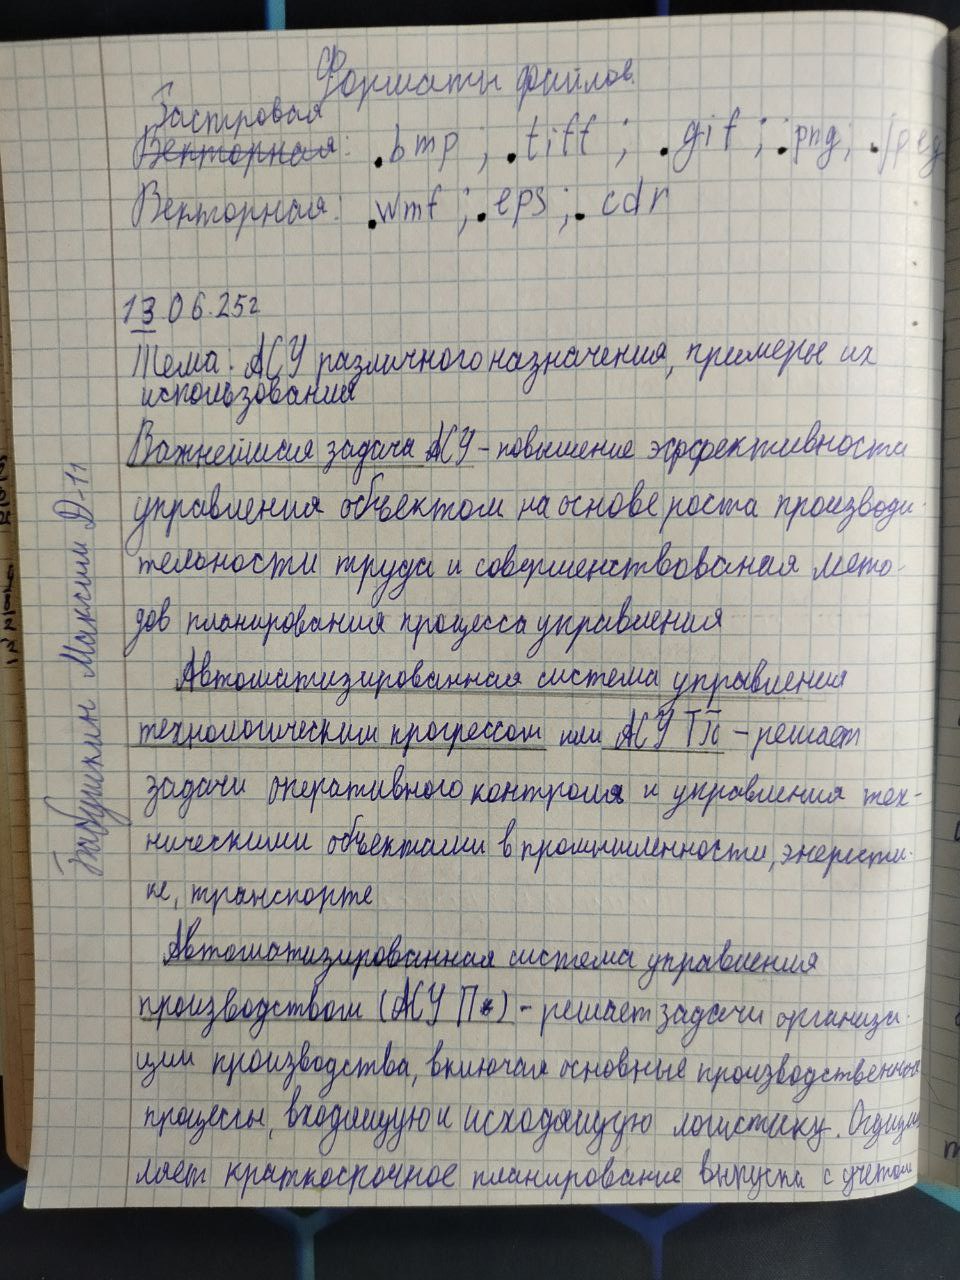 Форматы файлов.
Растровая
Векторная: .bmp; .tiff; .gif; .png; .jpeg
Векторная: .wmf; .eps; .cdr
13.06.25г
Тема: АСУ различного назначения, примеры их
использования
Важнейшая задача АСУ - повышение эффективности
управления объектом на основе роста производи-
тельности труда и совершенствования мето-
дов планирования процесса управления
Автоматизированная система управления
технологическим прогрессом или АСУ ТП - решает
задачи оперативного контроля и управления тех-
ническими объектами в промышленности, энергети-
ке, транспорте
Автоматизированная система управления
производством (АСУ П) - решает задачи организа-
ции производства, включая основные производственные
процессы, входящую и исходящую логистику. Осущест
ляет краткосрочное планирование выпуска с учетом
Бабушкин Максим Д-11